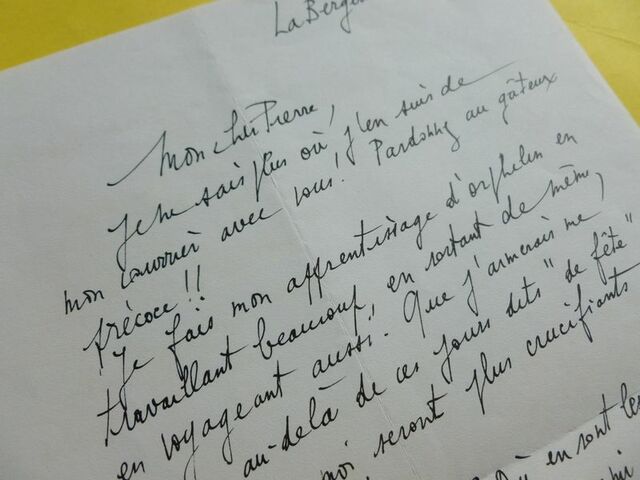 La Berge
Mon cher Pierre,
Je ne sais plus où j'en suis de
mon courrier avec vous! Pardonnez au gâteux
précoce!!
Je fais mon apprentissage d'orphelin en
travaillant beaucoup, en sortant de même,
en voyageant aussi. Que j'aimerais me
au-delà de ces jours dits "de fête"
moi seront plus crucifiants
Où en sont les